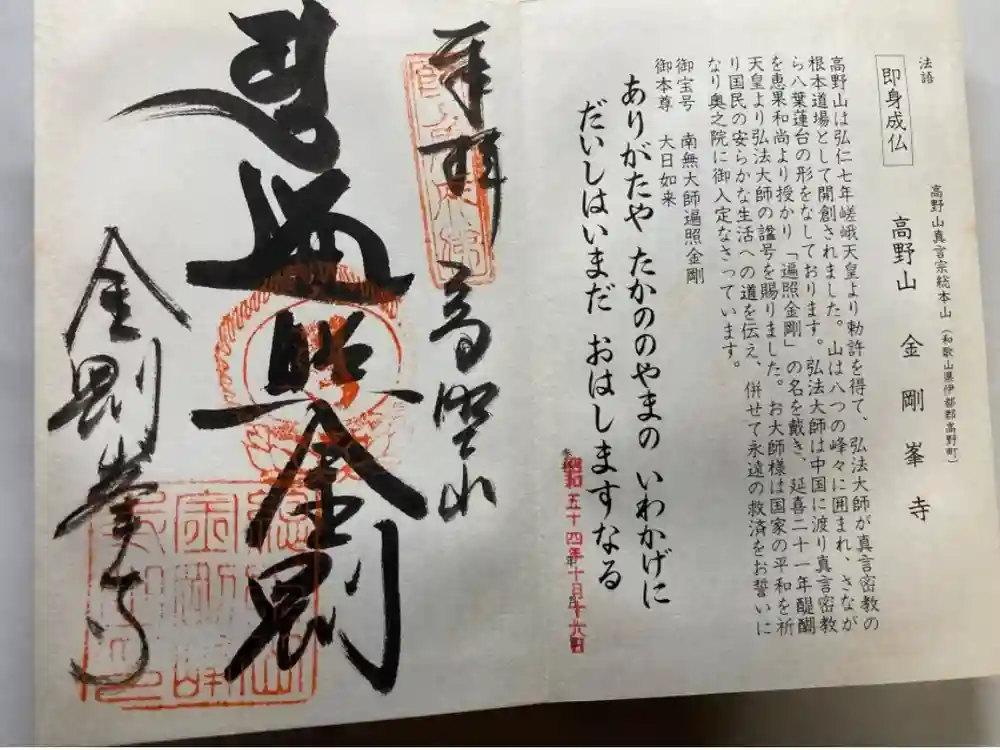 法語
即身成仏
高野山真言宗総本山（和歌山県伊都郡高野町）
高野山 金剛峯寺
高野山は弘仁七年嵯峨天皇より勅許を得て、弘法大師が真言密教の
根本道場として開創されました。山は八つの峰々に囲まれ、さなが
ら八葉蓮台の形をなしております。弘法大師は中国に渡り真言密教
を恵果和尚より授かり「遍照金剛」の名を戴き、延喜二十一年醍醐
天皇より弘法大師の諡号を賜りました。お大師様は国家の平和を祈
り国民の安らかな生活への道を伝え、併せて永遠の救済をお誓いに
なり奥之院に御入定なさっています。
御宝号 南無大師遍照金剛
御本尊 大日如来
ありがたや たかののやまの いわかげに
だいしはいまだ おはしますなる
昭和五十四年十月十六日
奉拝 高野山
遍照金剛
金剛峯寺